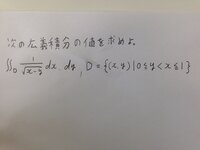 次の広義積分の値を求めよ。
∬_D 1/√(x-y) dx dy , D = {(x,y) | 0 ≤ y < x ≤ 1}